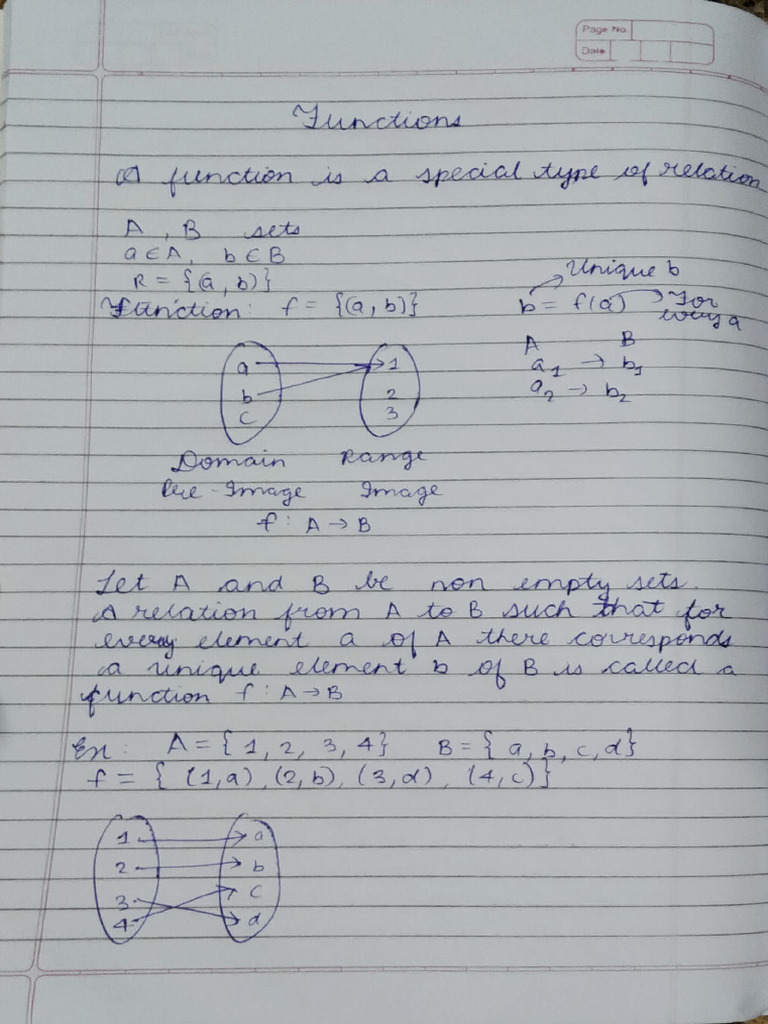 Page No.
Date
Functions
A function is a special type of relation
A, B sets
a ∈ A, b ∈ B
R = {(a, b)}
Unique b
Function: f = {(a, b)}
b = f(a) → For
every a
A B
a₁ → b₁
a₂ → b₂
a 1
b 2
c 3
Domain Range
Pre-Image Image
f : A → B
Let A and B be non empty sets.
A relation from A to B such that for
every element a of A there corresponds
a unique element b of B is called a
function f : A → B
Ex: A = {1, 2, 3, 4} B = {a, b, c, d}
f = {(1,a), (2,b), (3,d), (4,c)}
1 a
2 b
3 c
4 d